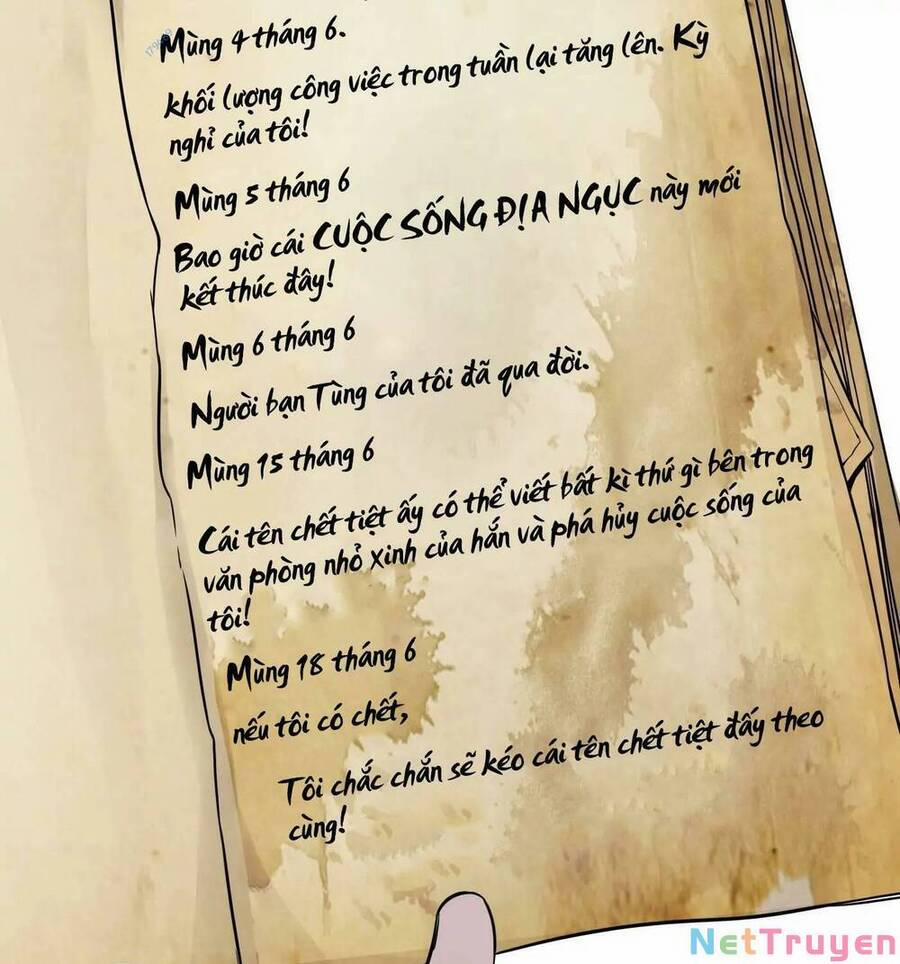 Mùng 4 tháng 6.
khối lượng công việc trong tuần lại tăng lên. Kỳ
nghỉ của tôi!
Mùng 5 tháng 6
Bao giờ cái CUỘC SỐNG ĐỊA NGỤC này mới
kết thúc đây!
Mùng 6 tháng 6
Người bạn Tùng của tôi đã qua đời.
Mùng 15 tháng 6
Cái tên chết tiệt ấy có thể viết bất kì thứ gì bên trong
văn phòng nhỏ xinh của hắn và phá hủy cuộc sống của
tôi!
Mùng 18 tháng 6
nếu tôi có chết,
Tôi chắc chắn sẽ kéo cái tên chết tiệt đấy theo
cùng!
NetTruyen